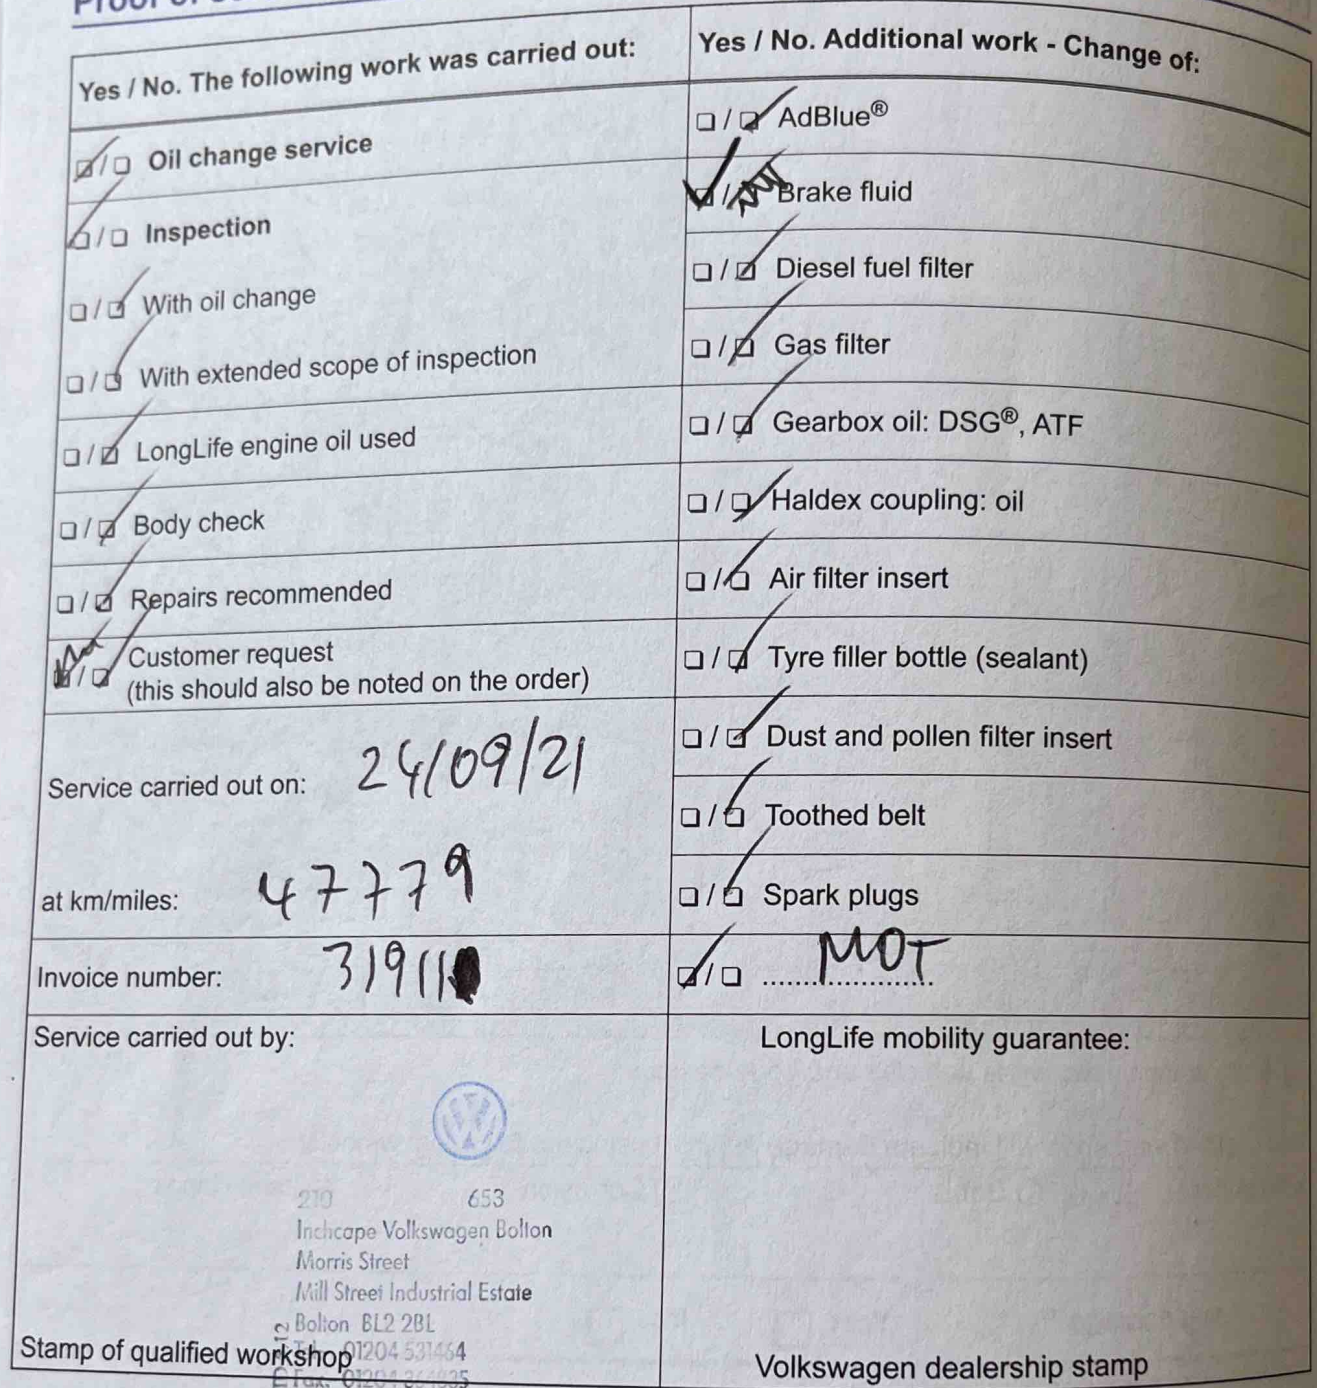 Yes / No. The following work was carried out:
Oil change service
Inspection
With oil change
With extended scope of inspection
LongLife engine oil used
Body check
Repairs recommended
Customer request
(this should also be noted on the order)
Service carried out on: 24/09/21
at km/miles: 47779
Invoice number: 31911
Service carried out by:
210 653
Inchcape Volkswagen Bolton
Morris Street
Mill Street Industrial Estate
Bolton BL2 2BL
01204 531464
Stamp of qualified workshop
Yes / No. Additional work - Change of:
AdBlue®
Brake fluid
Diesel fuel filter
Gas filter
Gearbox oil: DSG®, ATF
Haldex coupling: oil
Air filter insert
Tyre filler bottle (sealant)
Dust and pollen filter insert
Toothed belt
Spark plugs
MOT
LongLife mobility guarantee:
Volkswagen dealership stamp